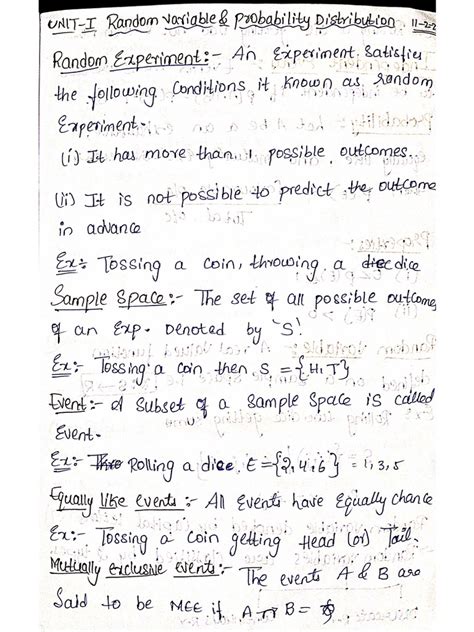 UNIT-I Random Variable & Probability Distribution 11-2-2
Random Experiment:- An Experiment Satisfies
the following Conditions it known as random
Experiment.
(i) It has more than 1 possible outcomes.
(ii) It is not possible to predict the outcome
in advance
Ex:- Tossing a coin, throwing a dice
Sample Space:- The set of all possible outcomes
of an Exp. Denoted by 'S'.
Ex:- Tossing a coin then S = {H,T}
Event:- A Subset of a Sample Space is called
Event.
Ex:- Rolling a dice, E={2,4,6} = 1,3,5
Equally like events:- All Events have Equally chance
Ex:- Tossing a coin getting Head (or) Tail.
Mutually exclusive events:- The events A & B are
Said to be MEE if A ∩ B = φ